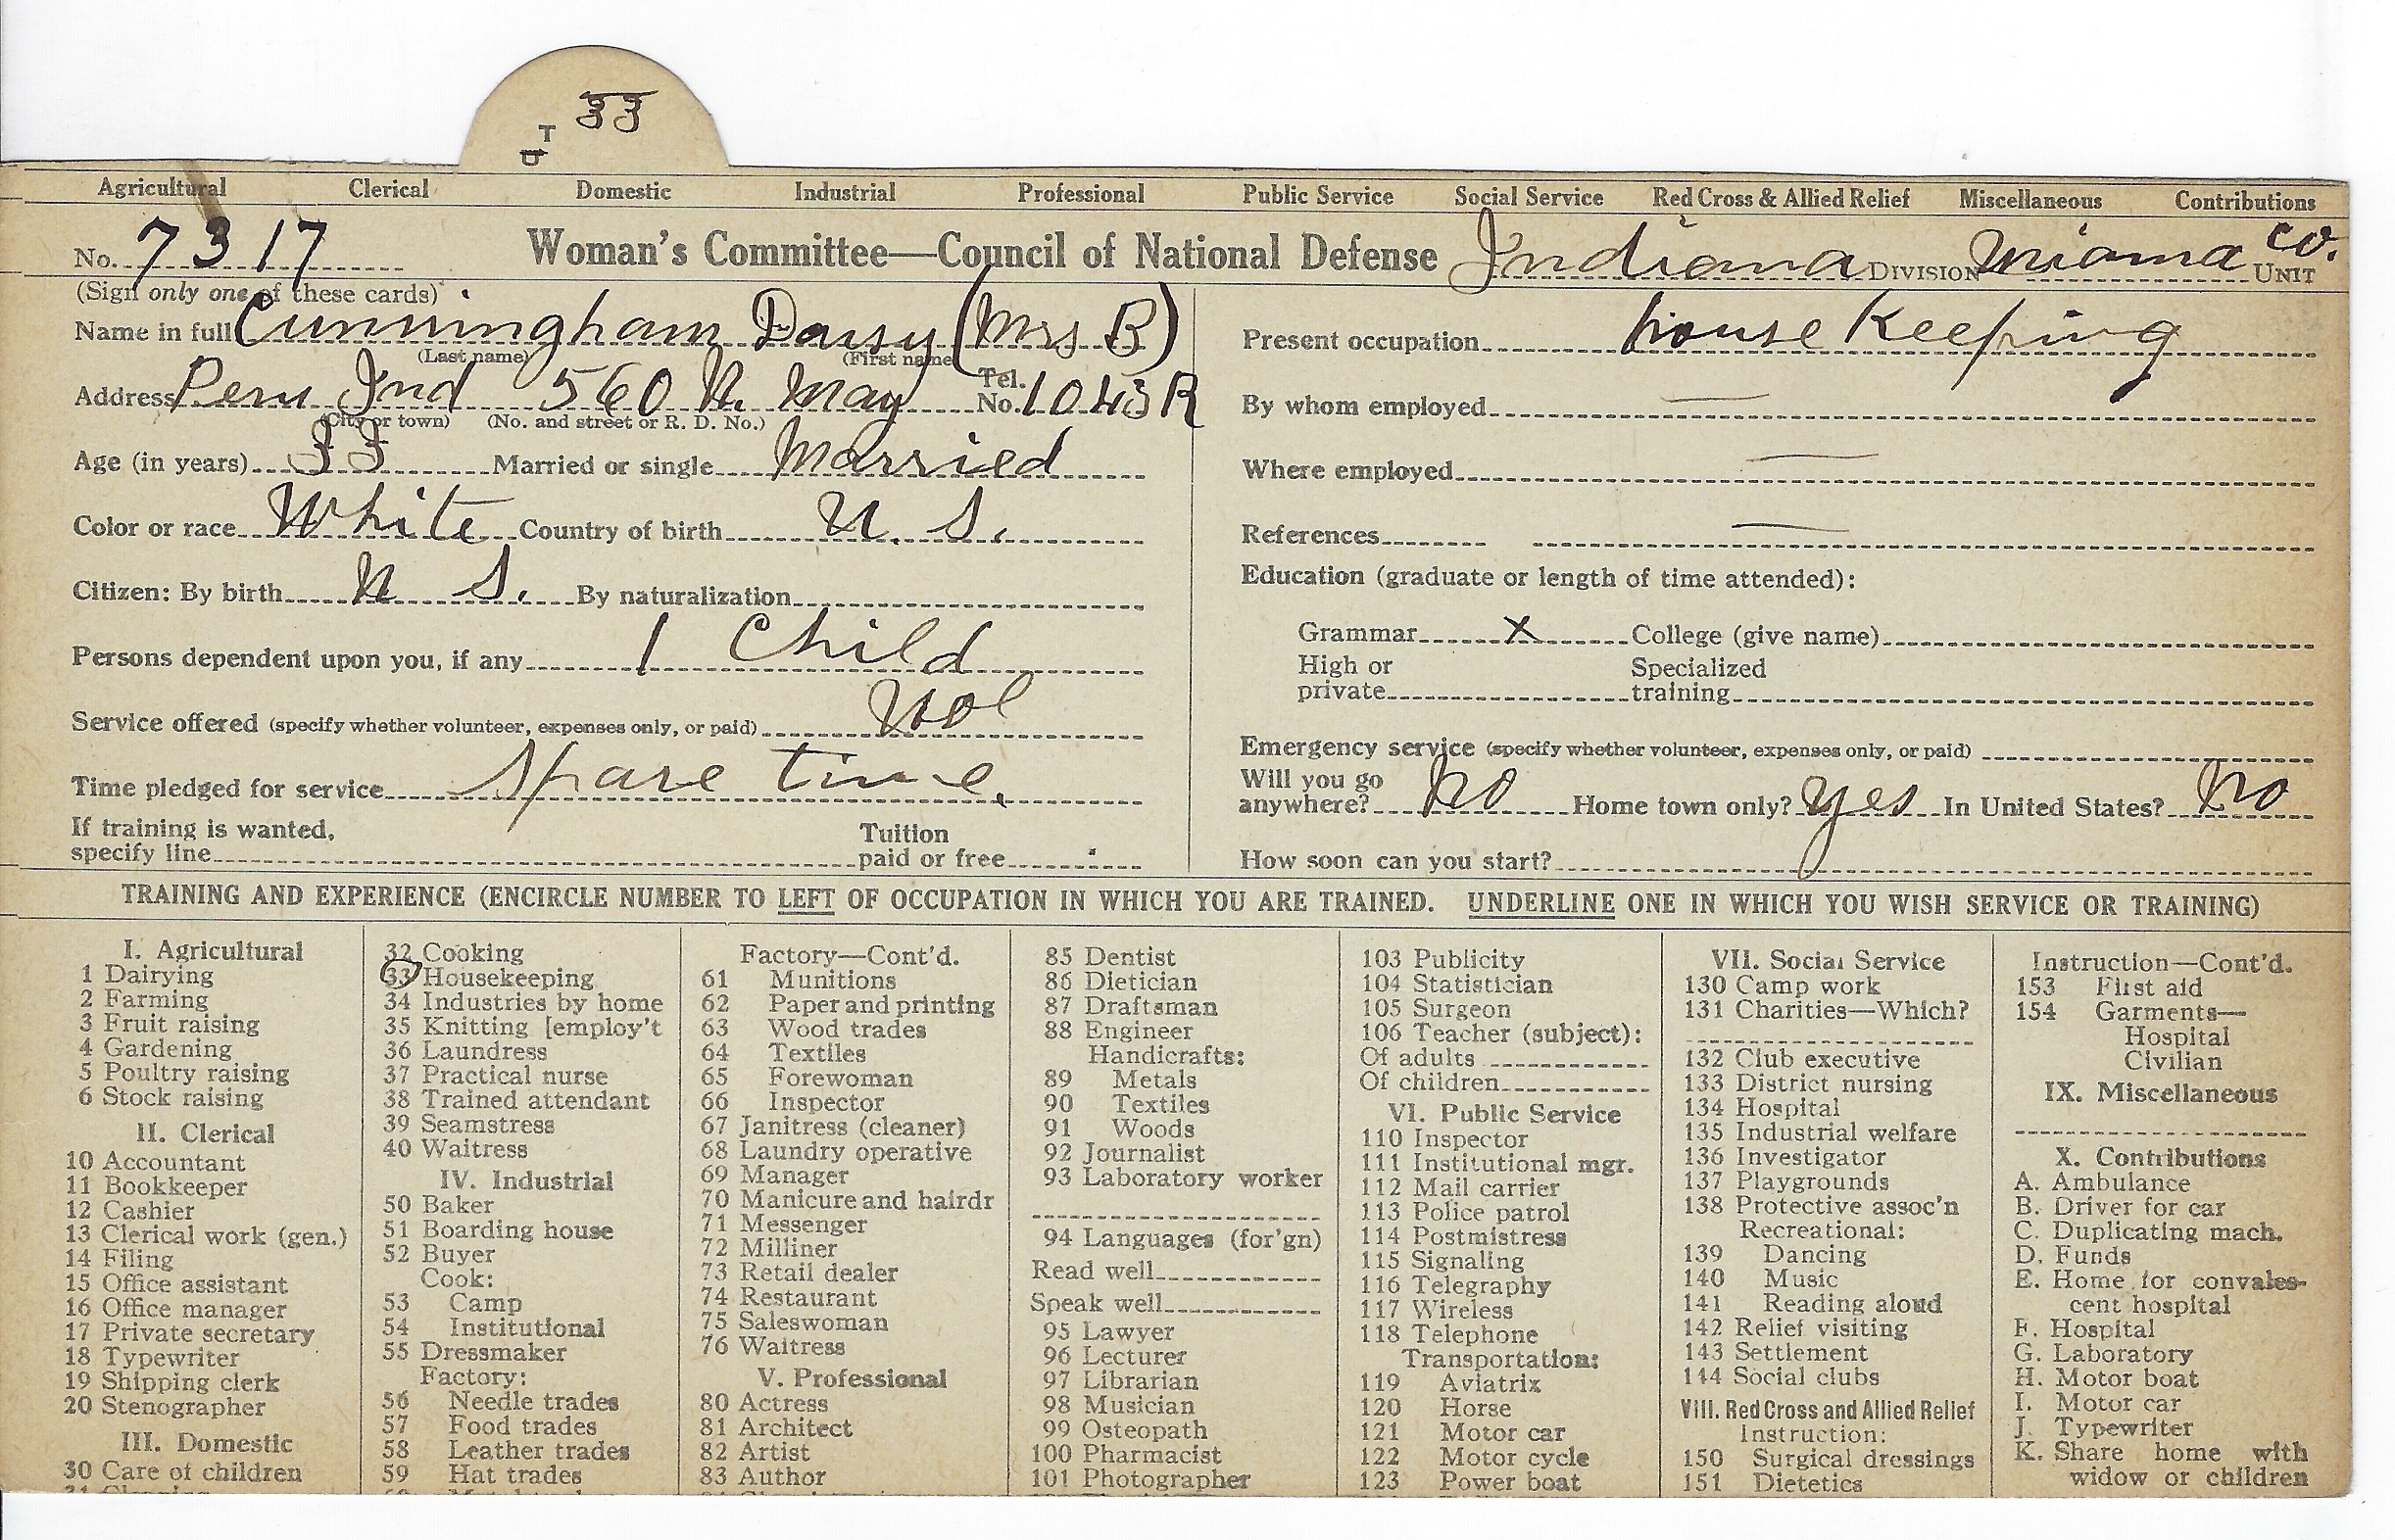 33
T
U
Agricultural Clerical Domestic Industrial Professional Public Service Social Service Red Cross & Allied Relief Miscellaneous Contributions
No. 7317 Woman's Committee—Council of National Defense Indiana DIVISION Miama Co. UNIT
(Sign only one of these cards)
Name in full Cunningham Daisy (Mrs B)
(Last name) (First name)
Address Peru Ind 560 N. May Tel. No. 1043R
(City or town) (No. and street or R. D. No.)
Age (in years) 33 Married or single Married
Color or race White Country of birth U. S.
Citizen: By birth U S. By naturalization
Persons dependent upon you, if any 1 Child
Service offered (specify whether volunteer, expenses only, or paid) Vol
Time pledged for service Spare time.
If training is wanted, specify line Tuition paid or free
Present occupation house Keeping
By whom employed —
Where employed —
References —
Education (graduate or length of time attended):
Grammar X College (give name)
High or private Specialized training
Emergency service (specify whether volunteer, expenses only, or paid)
Will you go anywhere? No Home town only? Yes In United States? No
How soon can you start?
TRAINING AND EXPERIENCE (ENCIRCLE NUMBER TO LEFT OF OCCUPATION IN WHICH YOU ARE TRAINED. UNDERLINE ONE IN WHICH YOU WISH SERVICE OR TRAINING)
I. Agricultural
1 Dairying
2 Farming
3 Fruit raising
4 Gardening
5 Poultry raising
6 Stock raising
II. Clerical
10 Accountant
11 Bookkeeper
12 Cashier
13 Clerical work (gen.)
14 Filing
15 Office assistant
16 Office manager
17 Private secretary
18 Typewriter
19 Shipping clerk
20 Stenographer
III. Domestic
30 Care of children
32 Cooking
33 Housekeeping
34 Industries by home
35 Knitting [employ't
36 Laundress
37 Practical nurse
38 Trained attendant
39 Seamstress
40 Waitress
IV. Industrial
50 Baker
51 Boarding house
52 Buyer
Cook:
53 Camp
54 Institutional
55 Dressmaker
Factory:
56 Needle trades
57 Food trades
58 Leather trades
59 Hat trades
Factory—Cont'd.
61 Munitions
62 Paper and printing
63 Wood trades
64 Textiles
65 Forewoman
66 Inspector
67 Janitress (cleaner)
68 Laundry operative
69 Manager
70 Manicure and hairdr
71 Messenger
72 Milliner
73 Retail dealer
74 Restaurant
75 Saleswoman
76 Waitress
V. Professional
80 Actress
81 Architect
82 Artist
83 Author
85 Dentist
86 Dietician
87 Draftsman
88 Engineer
Handicrafts:
89 Metals
90 Textiles
91 Woods
92 Journalist
93 Laboratory worker
94 Languages (for'gn)
Read well
Speak well
95 Lawyer
96 Lecturer
97 Librarian
98 Musician
99 Osteopath
100 Pharmacist
101 Photographer
103 Publicity
104 Statistician
105 Surgeon
106 Teacher (subject):
Of adults
Of children
VI. Public Service
110 Inspector
111 Institutional mgr.
112 Mail carrier
113 Police patrol
114 Postmistress
115 Signaling
116 Telegraphy
117 Wireless
118 Telephone
Transportation:
119 Aviatrix
120 Horse
121 Motor car
122 Motor cycle
123 Power boat
VII. Social Service
130 Camp work
131 Charities—Which?
132 Club executive
133 District nursing
134 Hospital
135 Industrial welfare
136 Investigator
137 Playgrounds
138 Protective assoc'n
Recreational:
139 Dancing
140 Music
141 Reading aloud
142 Relief visiting
143 Settlement
144 Social clubs
VIII. Red Cross and Allied Relief
Instruction:
150 Surgical dressings
151 Dietetics
Instruction—Cont'd.
153 First aid
154 Garments—
Hospital
Civilian
IX. Miscellaneous
X. Contributions
A. Ambulance
B. Driver for car
C. Duplicating mach.
D. Funds
E. Home for convales-
cent hospital
F. Hospital
G. Laboratory
H. Motor boat
I. Motor car
J. Typewriter
K. Share home with
widow or children